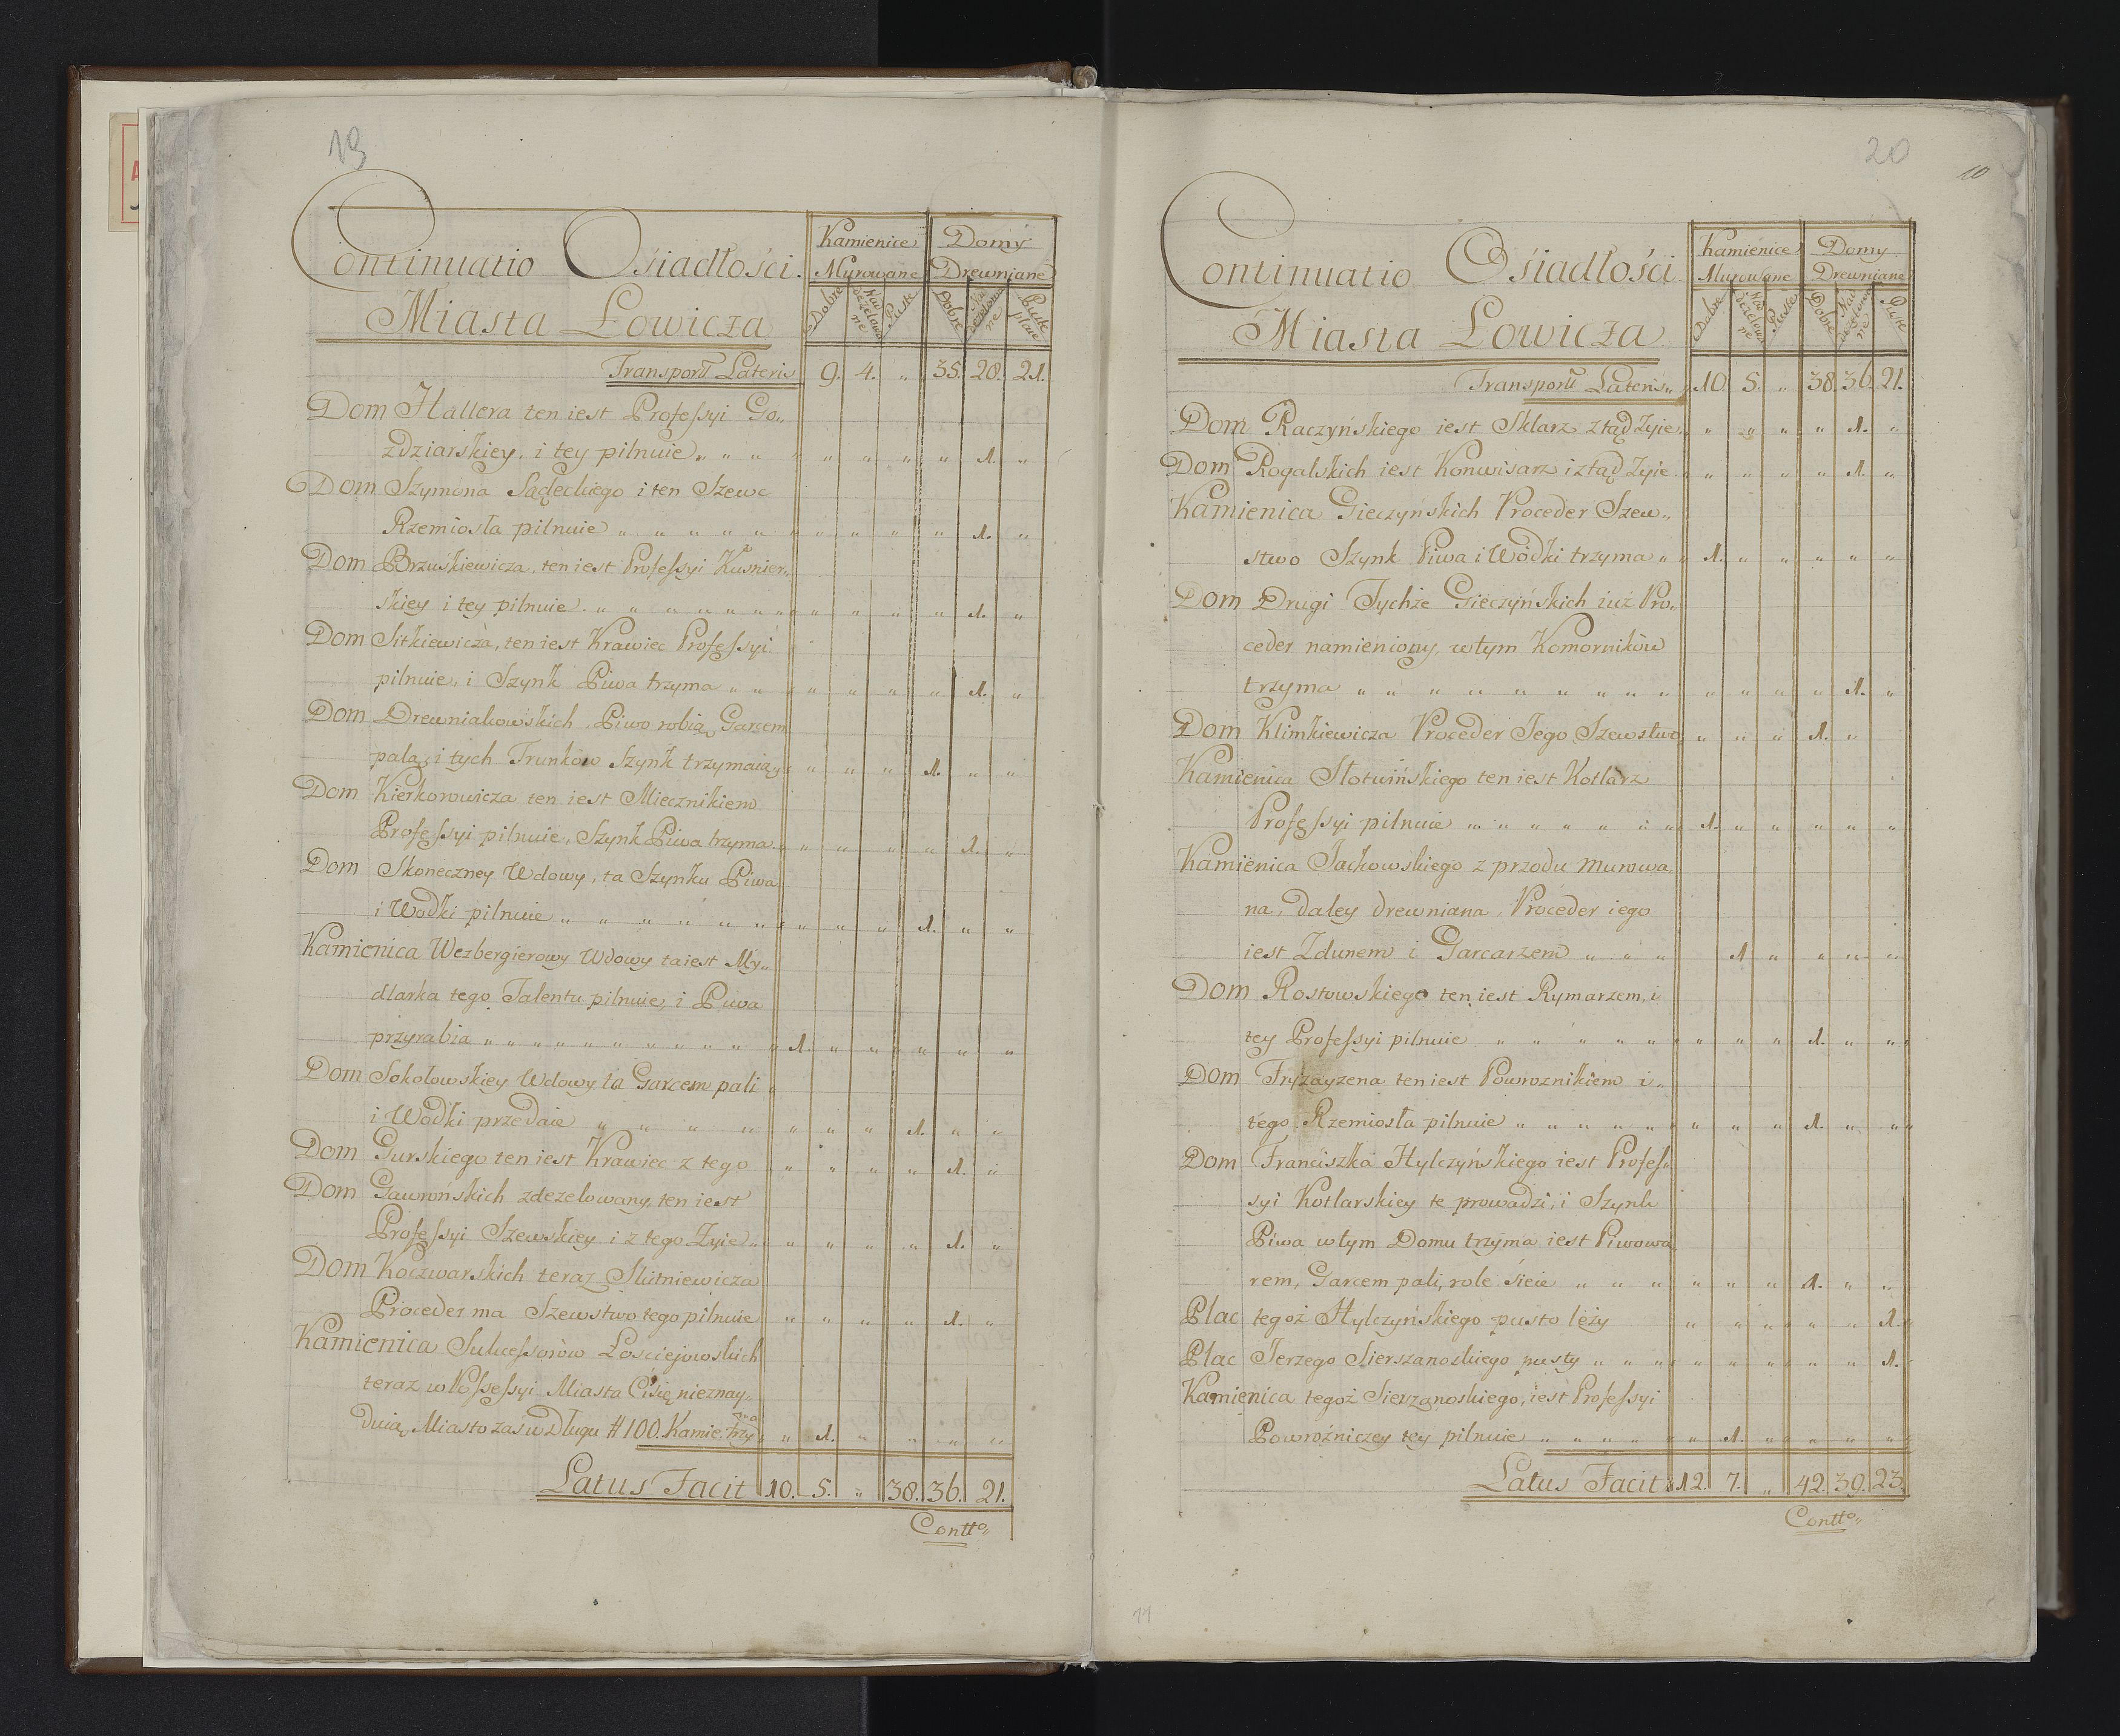 19
Continuatio Osiadłości
Miasta Łowicza
Kamienice Murowane
Domy Drewniane
Dobre
Nad dezelowane
Puste
Dobre
Nad dezelowane
Puste place
Transport Lateris 9. 4. „ 35. 28. 21.
Dom Hallera ten iest Professyi Go„
zdziarskiey, i tey pilnuie „ „ „ „ „ „ „ 1. „
Dom Szymona Sądeckiego i ten Szewc
Rzemiosła pilnuie „ „ „ „ „ „ „ „ „ „ 1. „
Dom Brzuskiewicza, ten iest Professyi Kusnier„
skiey i tey pilnuie „ „ „ „ „ „ „ „ „ „ „ 1. „
Dom Sitkiewicza, ten iest Krawiec Professyi
pilnuie, i Szynk Piwa trzyma „ „ „ „ „ „ 1. „
Dom Drewniakowskich Piwo robią, Garcem
palą, i tych Trunków Szynk trzymaią „ „ „ 1. „ „
Dom Kierkorowicza ten iest Miecznikiem
Professyi pilnuie, Szynk Piwa trzyma „ „ „ „ 1. „
Dom Skoneczney Wdowy, ta Szynku Piwa
i Wodki pilnuie „ „ „ „ „ „ „ „ „ „ 1. „ „
Kamienica Wezbergierowy Wdowy ta iest My„
dlarka tego Talentu pilnuie, i Piwa
przyrabia „ „ „ „ „ „ „ „ „ „ 1. „ „ „ „ „
Dom Sokolowskiey Wdowy ta Garcem pali
i Wodki przedaie „ „ „ „ „ „ „ 1. „ „
Dom Gurskiego ten iest Krawiec z tego „ „ „ „ 1. „
Dom Gawrońskich zdezelowany, ten iest
Professyi Szewskiey i z tego Zyie „ „ „ „ „ 1. „
Dom Koczwarskich teraz Slutniewicza
Proceder ma Szewstwo tego pilnuie „ „ „ „ 1. „
Kamienica Sukcessorów Łosciejowskich
teraz w Possessyi Miasta Ci się nieznay„
duią, Miasto zaś w Długu # 100. Kamie. trzy „ 1. „ „ „ „
Latus Facit 10. 5. „ 38. 36. 21.
Contto„
20
10
Continuatio Osiadłości
Miasta Łowicza
Kamienice Murowane
Domy Drewniane
Dobre
Nad dezelowane
Puste
Dobre
Nad dezelowane
Puste
Transport Lateris „ 10. 5. „ 38. 36. 21.
Dom Raczyńskiego iest Sklarz ztąd Zyie „ „ „ „ „ 1. „
Dom Rogalskich iest Konwisarz i ztąd Zyie „ „ „ „ „ 1. „
Kamienica Gieczyńskich Proceder Szew„
stwo Szynk Piwa i Wódki trzyma „ „ 1. „ „ „ „ „
Dom Drugi Tychże Gieczyńskich iuż Pro„
ceder namieniony, w tym Komorników
trzyma „ „ „ „ „ „ „ „ „ „ „ „ „ 1. „
Dom Klimkiewicza Proceder Jego Szewstwo „ „ „ 1. „
Kamienica Słotwińskiego ten iest Kotlarz
Professyi pilnuie „ „ „ „ „ „ „ 1. „ „ „ „ „
Kamienica Jackowskiego z przodu murowa„
na, daley drewniana, Proceder iego
iest Zdunem i Garcarzem „ „ „ 1. „ „ „ „
Dom Rostowskiego ten iest Rymarzem, i
tey Professyi pilnuie „ „ „ „ „ „ „ „ „ 1. „ „
Dom Fryzayzena ten iest Powroznikiem i„
tego Rzemiosła pilnuie „ „ „ „ „ „ „ „ „ 1. „ „
Dom Franciszka Hylczyńskiego iest Profes„
syi Kotlarskiey te prowadzi, i Szynk
Piwa w tym Domu trzyma iest Piwowa„
rem, Garcem pali, role sieie „ „ „ „ „ „ 1. „ „
Plac tegoż Hylczyńskiego pusto leży „ „ „ „ „ 1.
Plac Jerzego Sierszanoskiego pusty „ „ „ „ „ „ „ „ 1.
Kamienica tegoż Sierszanoskiego, iest Professyi
Powroźniczey tey pilnuie „ „ „ „ „ „ 1. „ „ „ „
Latus Facit „ 12. 7. „ 42. 39. 23.
Contto„
11